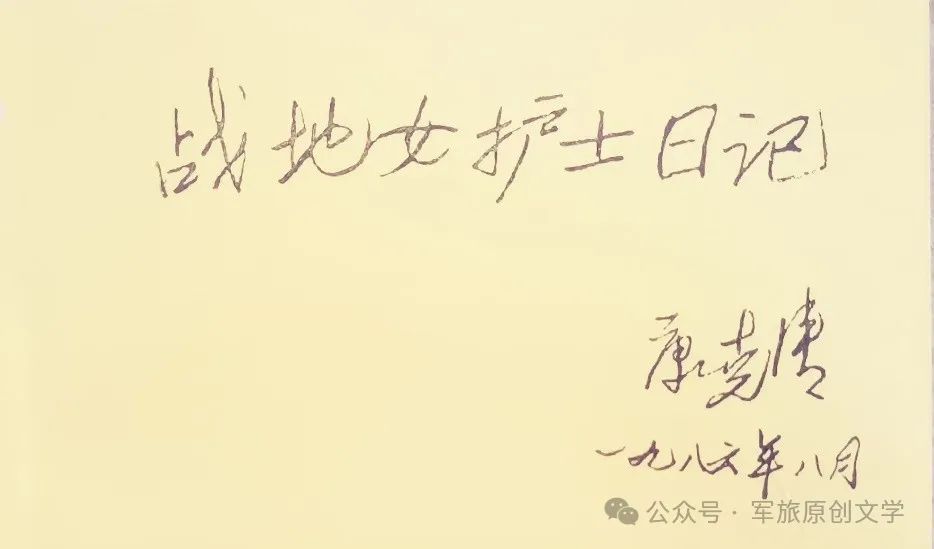 战地女护士日记
康克清
一九八六年八月
公众号·军旅原创文学